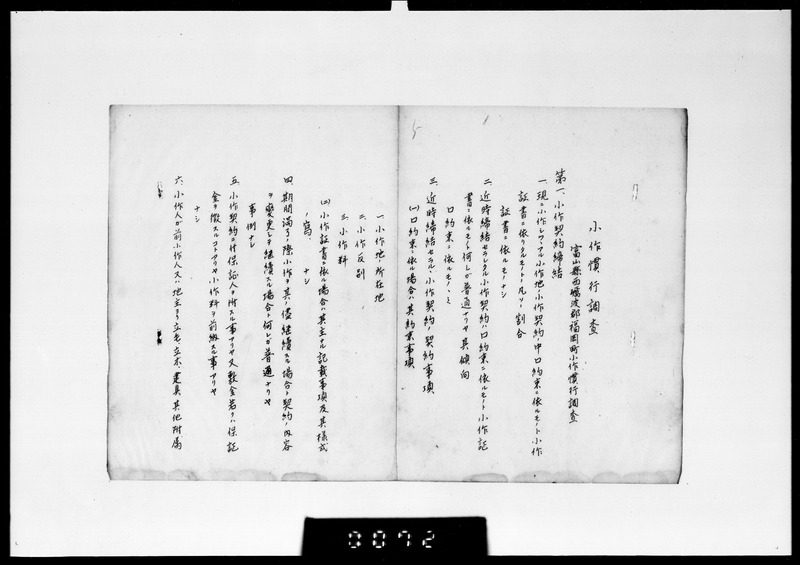 小作慣行調査
富山縣西礪波郡福岡町小作慣行調査
第一、小作契約締結
一、現ニ小作シツヽアル小作地ノ小作契約ノ中口約束ニ依ルモノト小作
証書ニ依リタルモノトノ凡ソノ割合
証書ニ依ルモノナシ
二、近時締結セラレタル小作契約ハ口約束ニ依ルモノト小作証
書ニ依ルモノト何レガ普通ナリヤ其傾向
口約束ニ依ルモノノミ
三、近時締結セラルヽ小作契約ノ契約事項
(一)口約束ニ依ル場合ハ其約束事項
一、小作地ノ所在地
二、小作反別
三、小作料
(二)小作証書ニ依ル場合ハ其主ナル記載事項及其樣式
ノ寫 ナシ
四、期間滿了ノ際小作ヲ其ノ儘継續スル場合ト契約ノ内容
ヲ変更シテ継續スル場合ト何レガ普通ナリヤ
事例ナシ
五、小作契約ニ付保証人ヲ附スル事アリヤ又敷金若クハ保証
金ヲ徴スルコトアリヤ小作料ヲ前納スル事アリヤ
ナシ
六、小作人ガ前小作人又ハ地主ヨリ立毛、立木、建具其他附属
0072